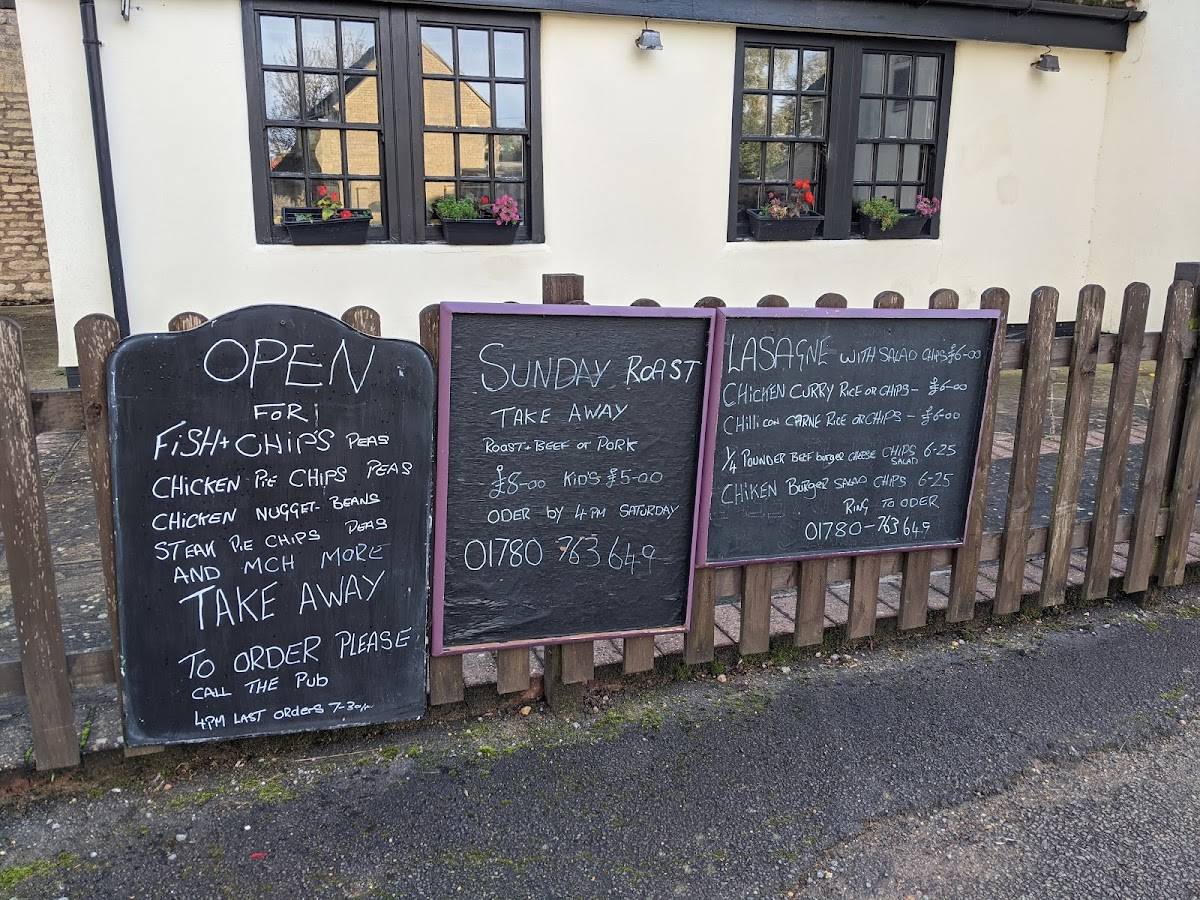 OPEN
FOR!
FISH + CHIP'S PEAS
CHICKEN PIE CHIPS PEAS
CHICKEN NUGGET- BEANS
STEAK PIE CHIPS PEAS
AND MCH MORE
TAKE AWAY
TO ORDER PLEASE
CALL THE PUB
4PM LAST ORDERS 7-30
SUNDAY ROAST
TAKE AWAY
ROAST BEEF or PORK
£8-00 KID'S £5-00
ODER by 4PM SATURDAY
01780 763 649
LASAGNE WITH SALAD CHIPS £6-00
CHICKEN CURRY RICE OR CHIPS - £6-00
CHILLI CON CARNE RICE OR CHIPS - £6-00
1/4 POUNDER BEEF burger CHEESE CHIPS 6-25
SALAD
CHIKEN BURGER SALAD CHIPS 6-25
RING TO ODER
01780-763649